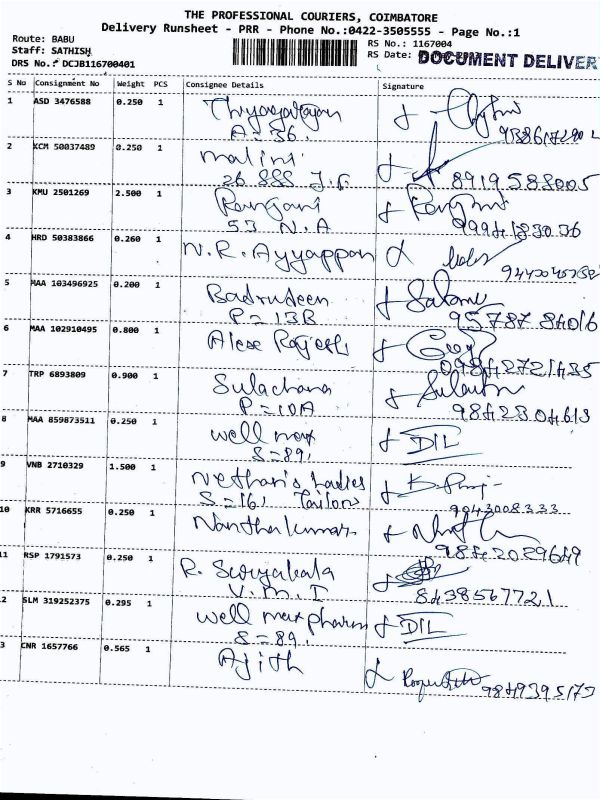 THE PROFESSIONAL COURIERS, COIMBATORE
Delivery Runsheet - PRR - Phone No.:0422-3505555 - Page No.:1
Route: BABU
Staff: SATHISH
DRS No.: DCJB116700401
RS No.: 1167004
RS Date:
DOCUMENT DELIVER
S No Consignment No Weight PCS Consignee Details Signature
1 ASD 3476588 0.250 1 Thyagarajan
A = 36.
2 KCM 50037489 0.250 1 malini
26 SSS J.G. 8919588005
3 KMU 2501269 2.500 1 Ranjani
53 N.A 9994183036
4 HRD 50383866 0.260 1 N.R. Ayyappan
5 MAA 103496925 0.200 1 Badrudeen
P = 13B 95787 84016
6 MAA 102910495 0.800 1 Rajesh
09842721435
7 TRP 6893809 0.900 1 Sulachana
P = 10A 9842304613
8 MAA 859873511 0.250 1 well max DIL
S = 89,
9 VNB 2710329 1.500 1 Nethan's Ladies
S = 16, Tailors 9043008333
10 KRR 5716655 0.250 1 Nanthakumar
9842029649
11 RSP 1791573 0.250 1 R. Suryakala
V.M.I 8438567721
2 SLM 319252375 0.295 1 well max pharm DIL
S = 89,
3 CNR 1657766 0.565 1 Ajith
9849395175